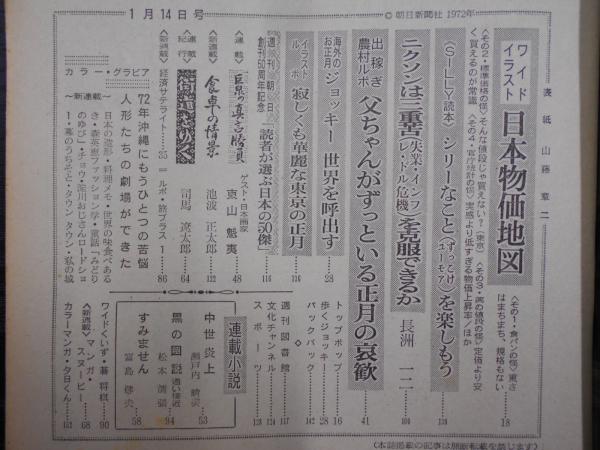 1月14日号
© 朝日新聞社 1972年
表紙 山藤章二
ワイド
イラスト
日本物価地図
〈その1・食パンの怪〉重さ
はまちまち、規格もない
18
〈その2・標準価格の怪〉そんな値段じゃ買えない?(東京)
〈その3・薬の値段の怪〉定価より安
く買えるのが常識
〈その4・官庁統計の怪〉実感より低すぎる物価上昇率/ほか
〈SILLY読本〉
シリーなこと(ずっこけユーモア)を楽しもう
ニクソンは三重苦(失業・インフレ・ドル危機)を克服できるか
長洲一二
出稼ぎ
農村ルポ
父ちゃんがずっといる正月の哀歓
41
海外の
お正月
ジョッキー 世界を呼出す
28
イラスト
ルポ
寂しくも華麗な東京の正月
週刊朝日
創刊50周年記念
「読者が選ぶ日本の50傑」
連載
ゲスト・日本画家
東山魁夷
48
〈新連載〉
食卓の情景
池波正太郎
122
〈連載〉
紀行
街道をゆく
司馬遼太郎
64
〈新連載〉経済サテライト
35
ルポ・旅プラス1
86
カラー・グラビア
72年沖縄にもうひとつの苦悩
人形たちの劇場ができた
〜新連載〜
日本の造形・料理メモ・世界の味食べある
き・森英恵ファッション学・童話「みどり
のゆび」・チョウ・淀川おじさんロードショ
ー・幕のうちそと・タウン タウン・私の城
トップ・ポップ
16
歩くジョッキー
28
バックパック
142
週刊図書館
117
文化チャンネル
124
スポーツ
連載小説
中世炎上
瀬戸内晴美
53
黒の図説
遠い接近
松本清張
94
すみません
富島健夫
58
ワイドくいず・碁 将棋
90
〈新連載〉マンガ・スヌーピー
68
カラーマンガ・夕日くん
(本誌掲載の記事は無断転載を禁じます)